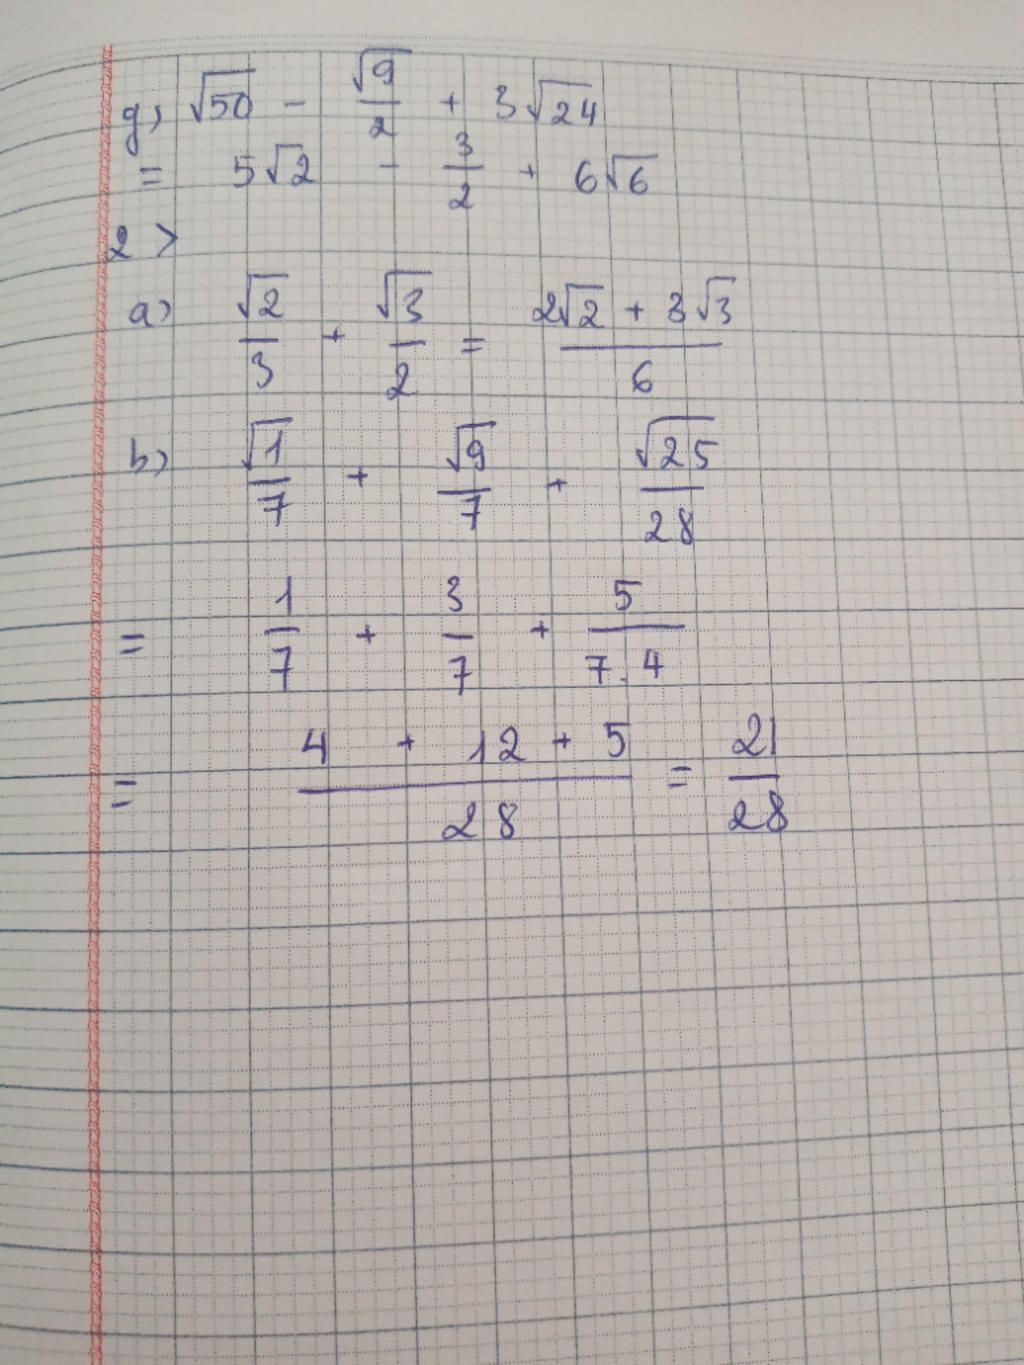 g) √50 - √9/2 + 3√24
= 5√2 - 3/2 + 6√6
2>
a) √2/3 + √3/2 = (2√2 + 3√3)/6
b) √1/7 + √9/7 + √25/28
= 1/7 + 3/7 + 5/(7.4)
= (4 + 12 + 5)/28 = 21/28